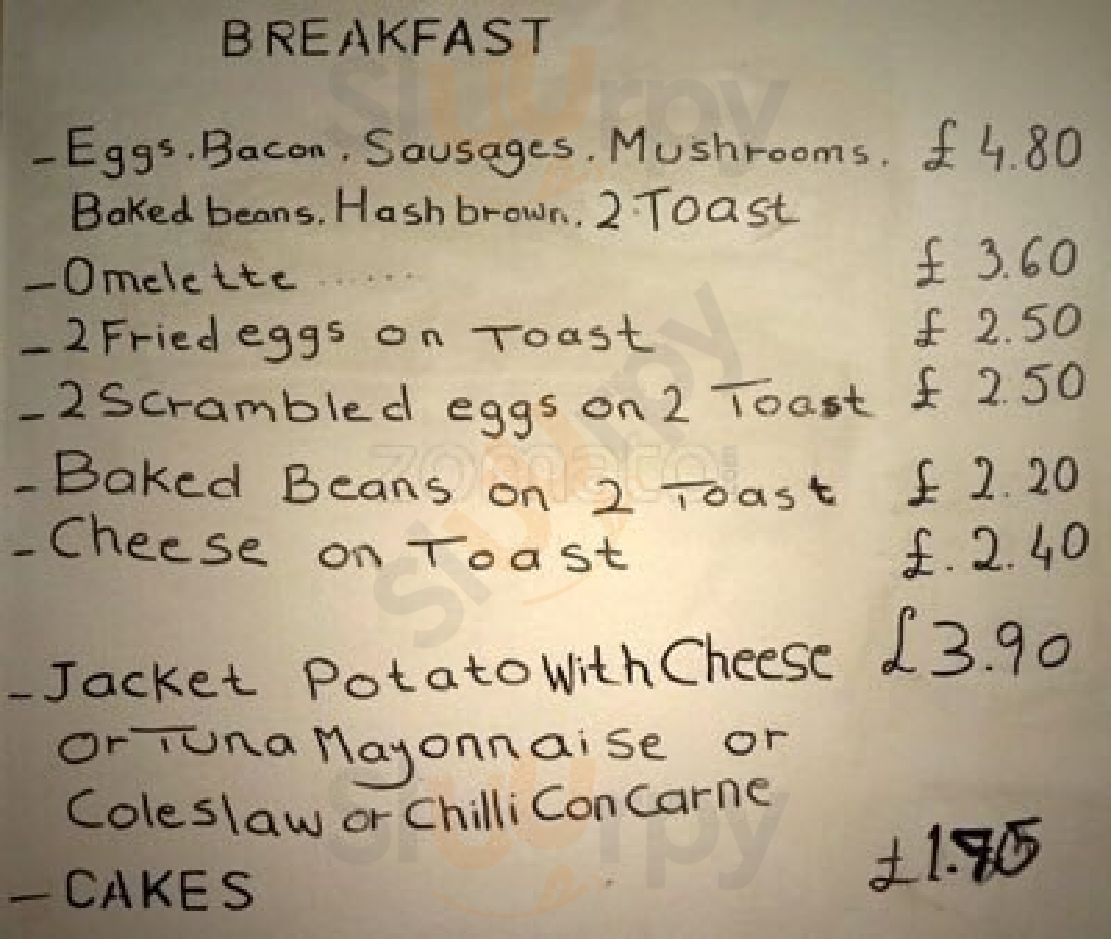 BREAKFAST
- Eggs. Bacon. Sausages. Mushrooms. £ 4.80
Baked beans. Hash brown. 2 Toast
- Omelette ...... £ 3.60
- 2 Fried eggs on Toast £ 2.50
- 2 Scrambled eggs on 2 Toast £ 2.50
- Baked Beans on 2 Toast £ 2.20
- Cheese on Toast £. 2.40
- Jacket Potato With Cheese £3.90
or Tuna Mayonnaise or
Coleslaw or Chilli Con Carne
- CAKES
Slurpy
zomato